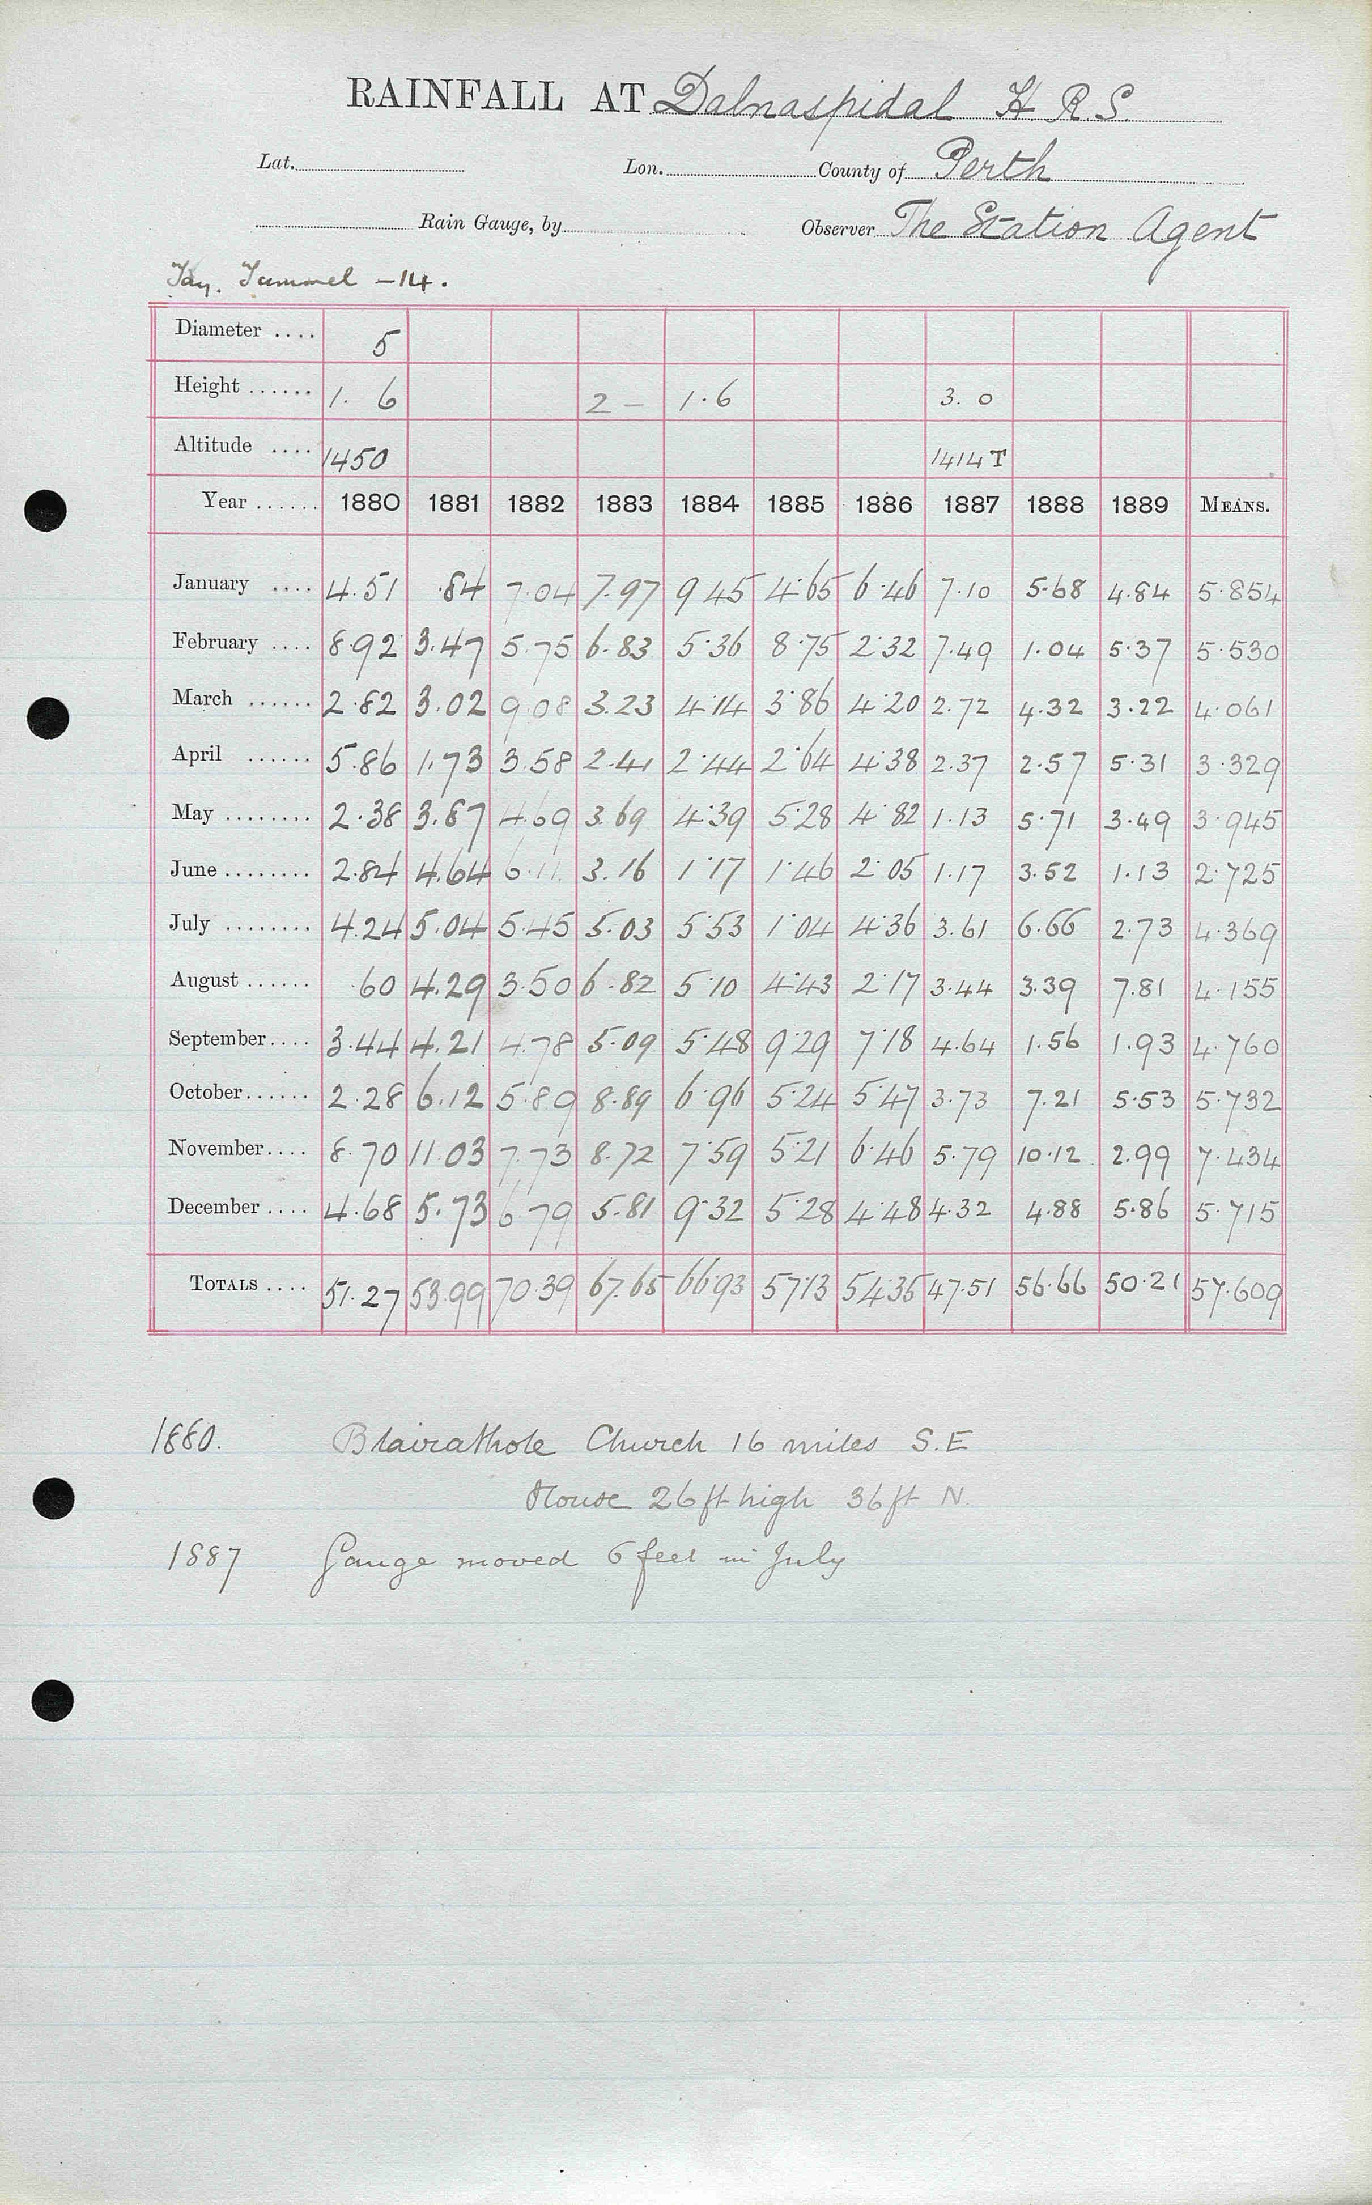 RAINFALL AT Dalnaspidal H.R.S.
Lat. Lon. County of Perth
Rain Gauge, by Observer The Station Agent
Tay. Tummel – 14.
Diameter .... 5
Height ...... 1. 6 2 – 1.6 3. 0
Altitude .... 1450 1414 T
Year ...... 1880 1881 1882 1883 1884 1885 1886 1887 1888 1889 MEANS.
January .... 4.51 .84 7.04 7.97 9.45 4.65 6.46 7.10 5.68 4.84 5.854
February .... 8.92 3.47 5.75 6.83 5.36 8.75 2.32 7.49 1.04 5.37 5.530
March ...... 2.82 3.02 9.08 3.23 4.14 3.86 4.20 2.72 4.32 3.22 4.061
April ...... 5.86 1.73 3.58 2.41 2.44 2.64 4.38 2.37 2.57 5.31 3.329
May ........ 2.38 3.87 4.69 3.69 4.39 5.28 4.82 1.13 5.71 3.49 3.945
June ........ 2.84 4.64 6.11 3.16 1.17 1.46 2.05 1.17 3.52 1.13 2.725
July ........ 4.24 5.04 5.45 5.03 5.53 1.04 4.36 3.61 6.66 2.73 4.369
August ...... .60 4.29 3.50 6.82 5.10 4.43 2.17 3.44 3.39 7.81 4.155
September.... 3.44 4.21 4.78 5.09 5.48 9.29 7.18 4.64 1.56 1.93 4.760
October...... 2.28 6.12 5.89 8.89 6.96 5.24 5.47 3.73 7.21 5.53 5.732
November.... 8.70 11.03 7.73 8.72 7.59 5.21 6.46 5.79 10.12 2.99 7.434
December .... 4.68 5.73 6.79 5.81 9.32 5.28 4.48 4.32 4.88 5.86 5.715
TOTALS .... 51.27 53.99 70.39 67.65 66.93 57.13 54.35 47.51 56.66 50.21 57.609
1880. Blairathole Church 16 miles S.E
House 26 ft high 36 ft N.
1887 Gauge moved 6 feet in July